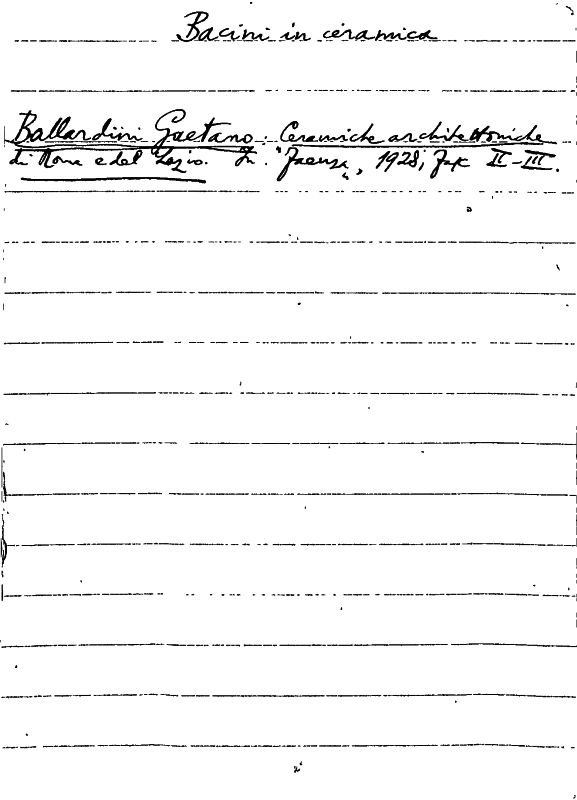 Bacini in ceramica
Ballardini Gaetano: Ceramiche architettoniche
di Roma e del Lazio. In: "Faenza", 1928, fasc. II-III.